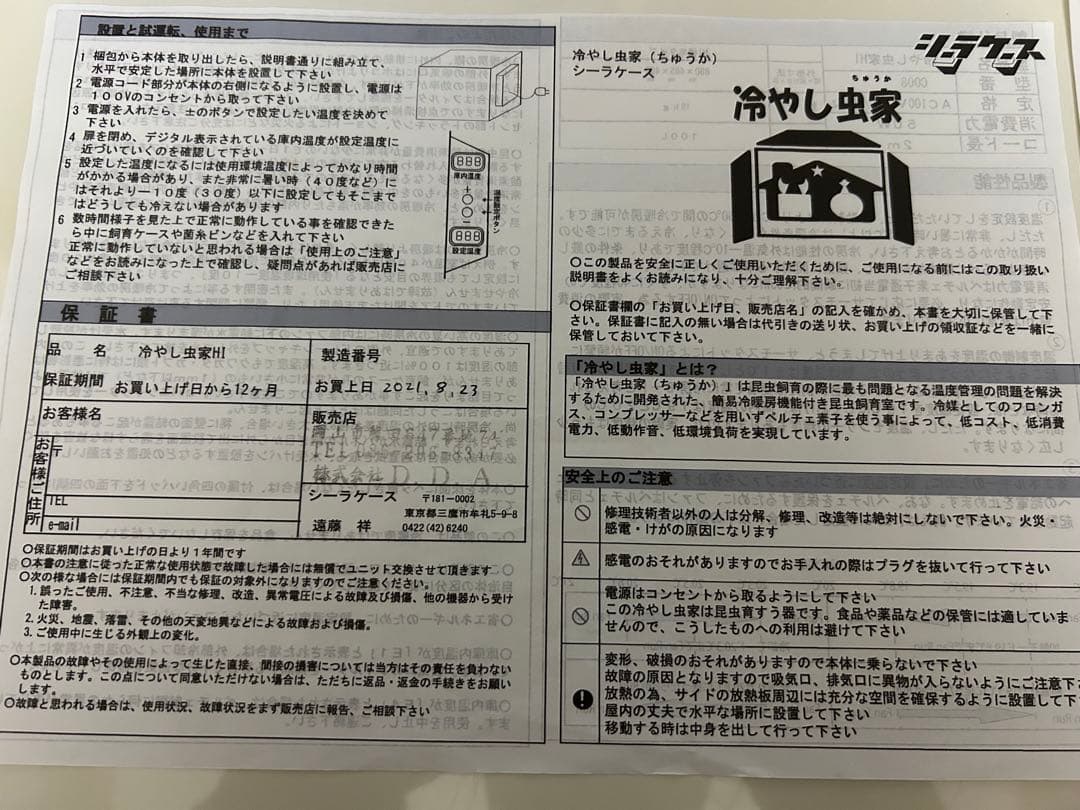 設置と試運転、使用まで
1 梱包から本体を取り出したら、説明書通りに組み立て、
水平で安定した場所に本体を設置して下さい
2 電源コード部分が本体の右側になるように設置し、電源は
100Vのコンセントから取って下さい
3 電源を入れたら、±のボタンで設定したい温度を決めて
下さい
4 扉を閉め、デジタル表示されている庫内温度が設定温度に
近づいていくのを確認して下さい
5 設定した温度になるには使用環境温度によってかなり時間
がかかる場合があり、また非常に暑い時（40度など）に
はそれより－10度（30度）以下に設定してもそこまで
はどうしても冷えない場合があります
6 数時間様子を見た上で正常に動作している事を確認できた
ら中に飼育ケースや菌糸ビンなどを入れて下さい
正常に動作していないと思われる場合は「使用上のご注意」
などをお読みになった上で確認し、疑問点があれば販売店に
ご相談下さい
888
庫内温度
+
温度設定ボタン
−
888
設定温度
保証書
品名 冷やし虫家HI
製造番号
保証期間 お買い上げ日から12ヶ月
お買上日 2021.8.23
お客様名
販売店
お客様ご住所
〒
TEL
e-mail
株式会社 D.D.A
シーラケース 〒181-0002
東京都三鷹市牟礼5-9-8
遠藤 祥 0422(42)6240
○保証期間はお買い上げの日より1年間です
○本書の注意に従った正常な使用状態で故障した場合には無償でユニット交換させて頂きます
○次の様な場合には保証期間内でも保証の対象外になりますのでご注意ください。
1. 誤ったご使用、不注意、不当な修理、改造、異常電圧による故障及び損傷、他の機器から受け
た障害。
2. 火災、地震、落雷、その他の天変地異などによる故障および損傷。
3. ご使用中に生じる外観上の変化。
○本製品の故障やその使用によって生じた直接、間接の損害については当方はその責任を負わない
ものとします。この点について同意いただけない場合は、ただちに返品・返金の手続きをお願い
します。
○故障と思われる場合は、使用状況、故障状況をまず販売店に報告、ご相談下さい
冷やし虫家（ちゅうか）
シーラケース
シーラケース
ちゅうか
冷やし虫家
○この製品を安全に正しくご使用いただくために、ご使用になる前にはこの取り扱い
説明書をよくお読みになり、十分ご理解下さい。
○保証書欄の「お買い上げ日、販売店名」の記入を確かめ、本書を大切に保管して下
さい。保証書に記入の無い場合は代引きの送り状、お買い上げの領収証などを一緒に
保管しておいて下さい。
「冷やし虫家」とは？
「冷やし虫家（ちゅうか）」は昆虫飼育の際に最も問題となる温度管理の問題を解決
するために開発された、簡易冷暖房機能付き昆虫飼育室です。冷媒としてのフロンガ
ス、コンプレッサーなどを用いずペルチェ素子を使う事によって、低コスト、低消費
電力、低動作音、低環境負荷を実現しています。
安全上のご注意
修理技術者以外の人は分解、修理、改造等は絶対にしないで下さい。火災・
感電・けがの原因になります
感電のおそれがありますのでお手入れの際はプラグを抜いて行って下さい
電源はコンセントから取るようにして下さい
この冷やし虫家は昆虫飼育する器です。食品や薬品などの保管には適していま
せんので、こうしたものへの利用は避けて下さい
変形、破損のおそれがありますので本体に乗らないで下さい
故障の原因となりますので吸気口、排気口に異物が入らないようにご注意下さ
放熱の為、サイドの放熱板周辺には充分な空間を確保するように設置して下
屋内の丈夫で水平な場所に設置して下さい
移動する時は中身を出して行って下さい